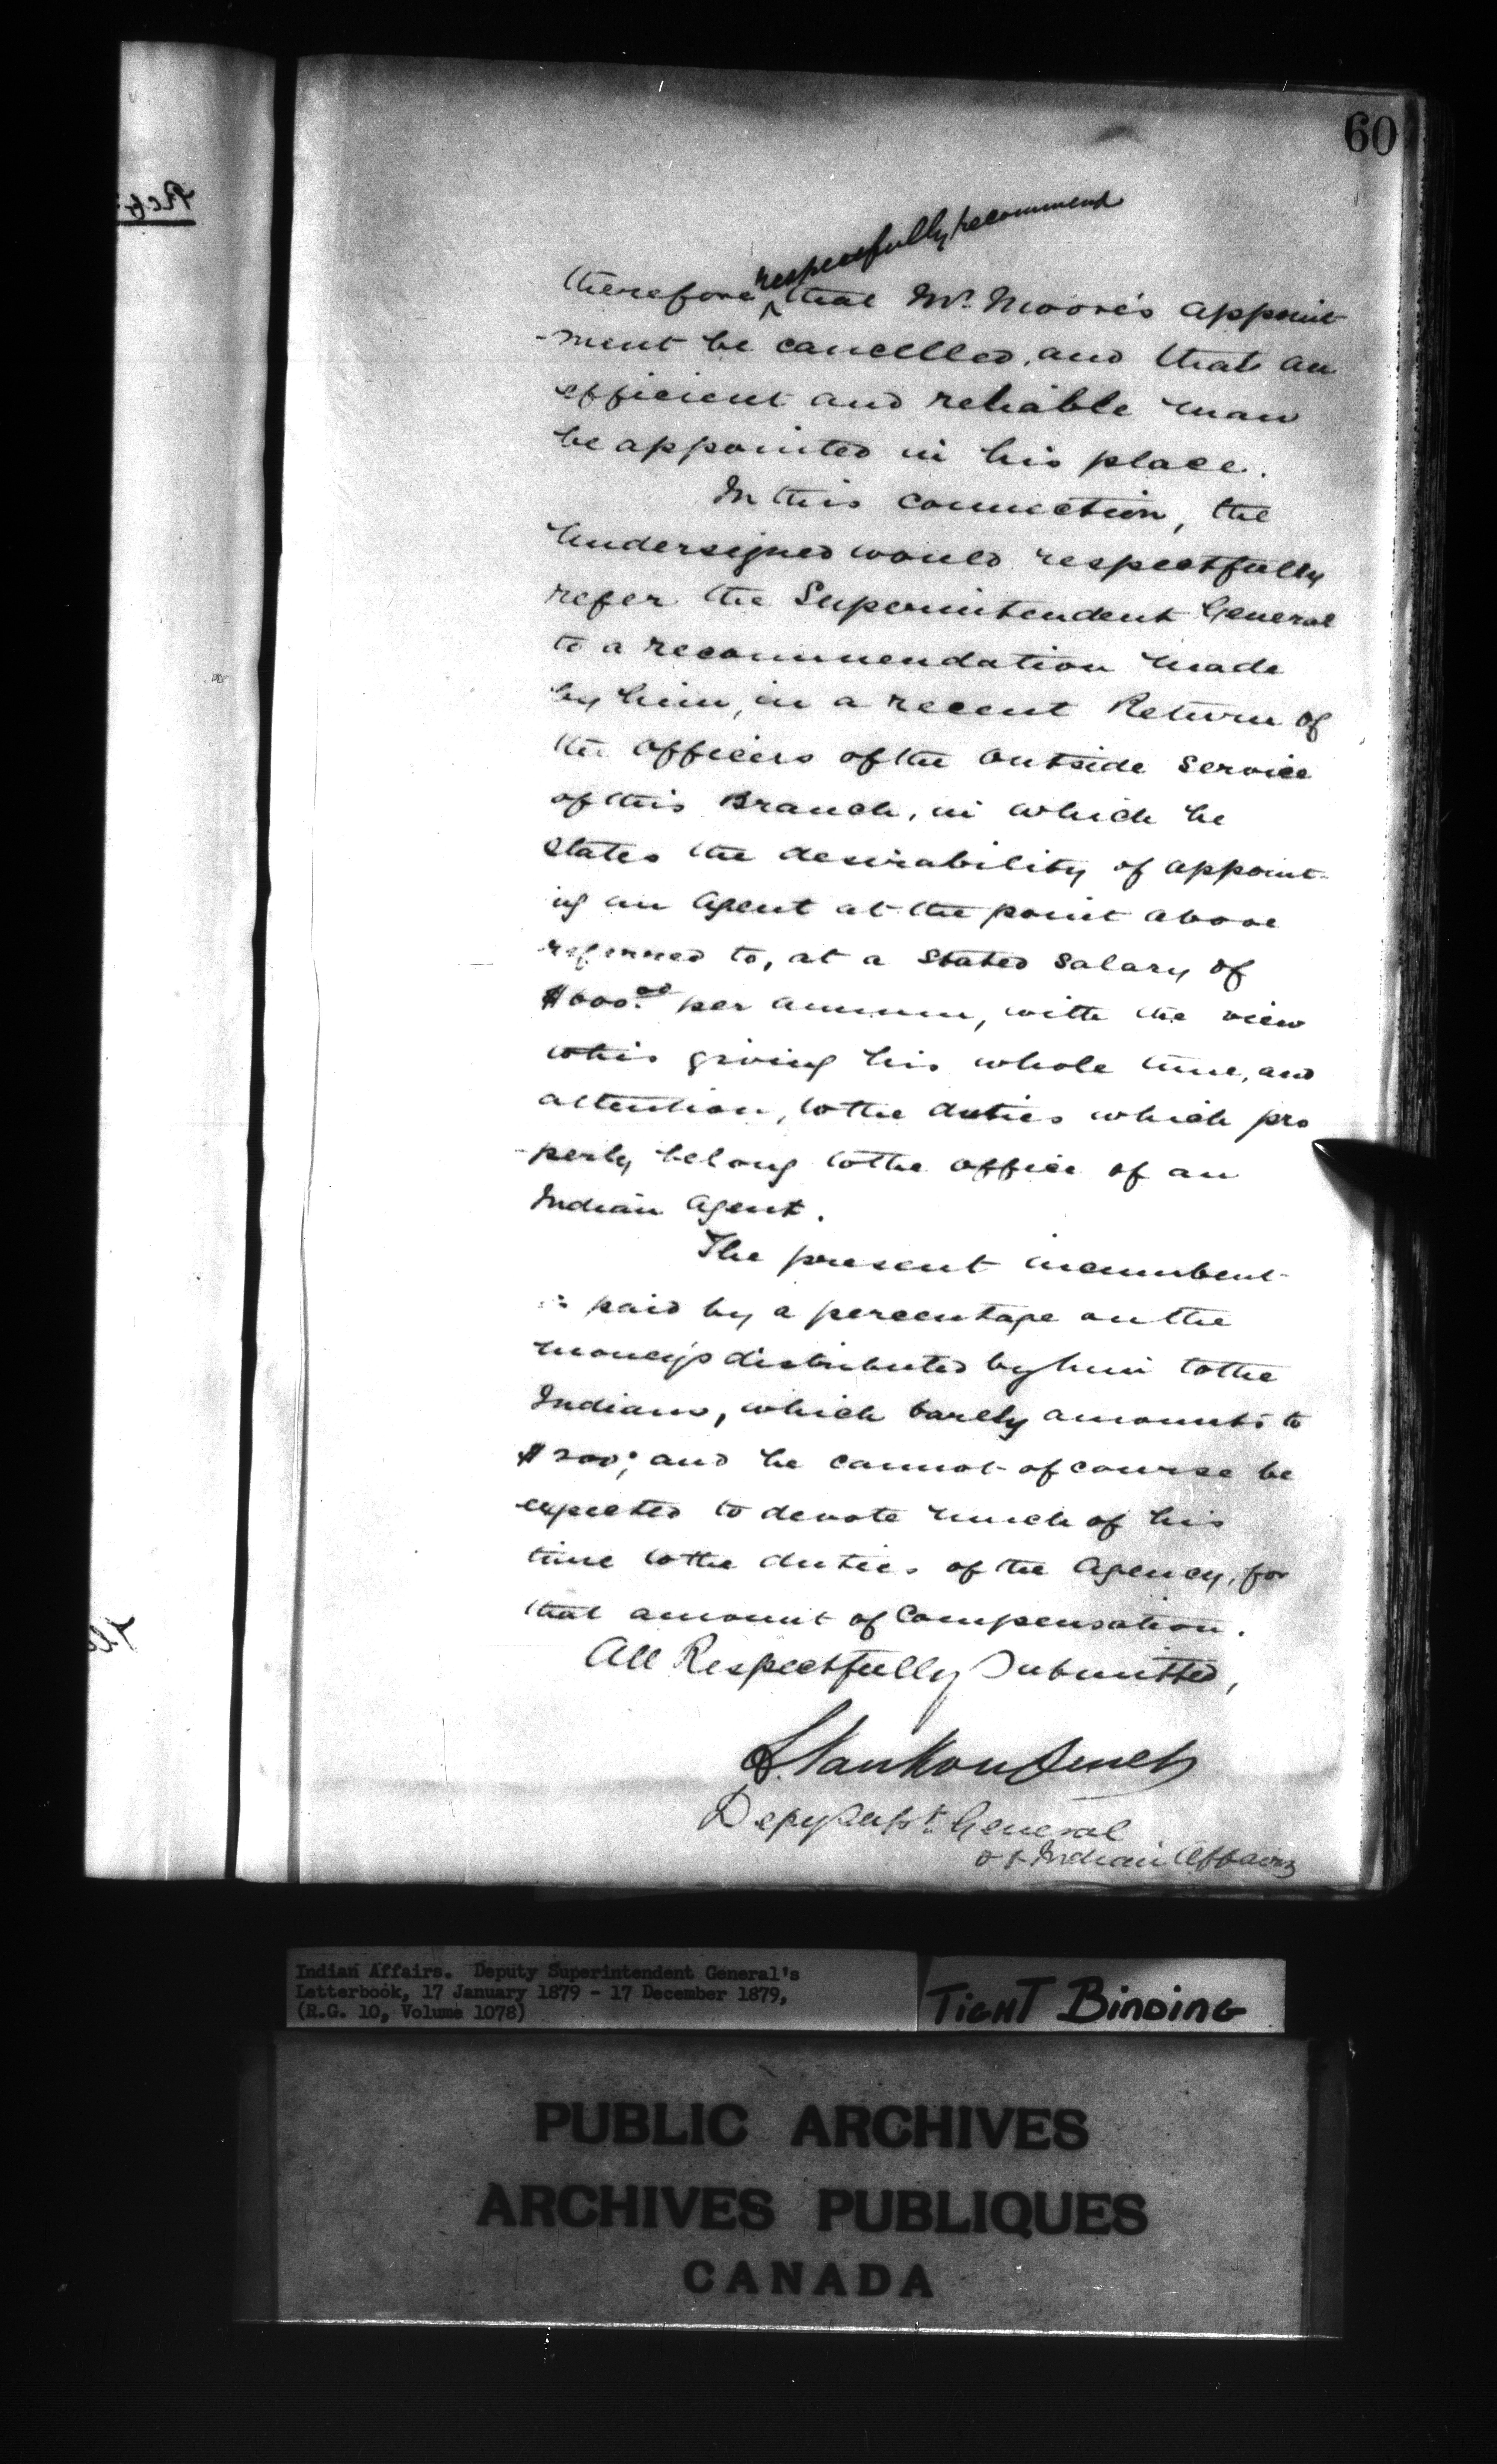 60
respectfully recommend
therefore ^ that Mr. Moore's appoint
-ment be cancelled, and that an
efficient and reliable man
be appointed in his place.
In this connection, the
Undersigned would respectfully
refer the Superintendent General
to a recommendation made
by him, in a recent Return of
the Officers of the Outside Service
of this Branch, in which he
states the desirability of appoint-
ing an Agent at the point above
referred to, at a stated salary of
$600.00 per annum, with the view
to his giving his whole time, and
attention, to the duties which pro
-perly belong to the office of an
Indian Agent.
The present incumbent
is paid by a percentage on the
money's distributed by him to the
Indians, which barely amounts to
$200; and he cannot of course be
expected to devote much of his
time to the duties of the Agency, for
that amount of Compensation.
All Respectfully Submitted,
L. VanKoughnet
Depy Supt. General
of Indian Affairs
Indian Affairs. Deputy Superintendent General's
Letterbook, 17 January 1879 - 17 December 1879,
(R.G. 10, Volume 1078)
TIGHT BINDING
PUBLIC ARCHIVES
ARCHIVES PUBLIQUES
CANADA